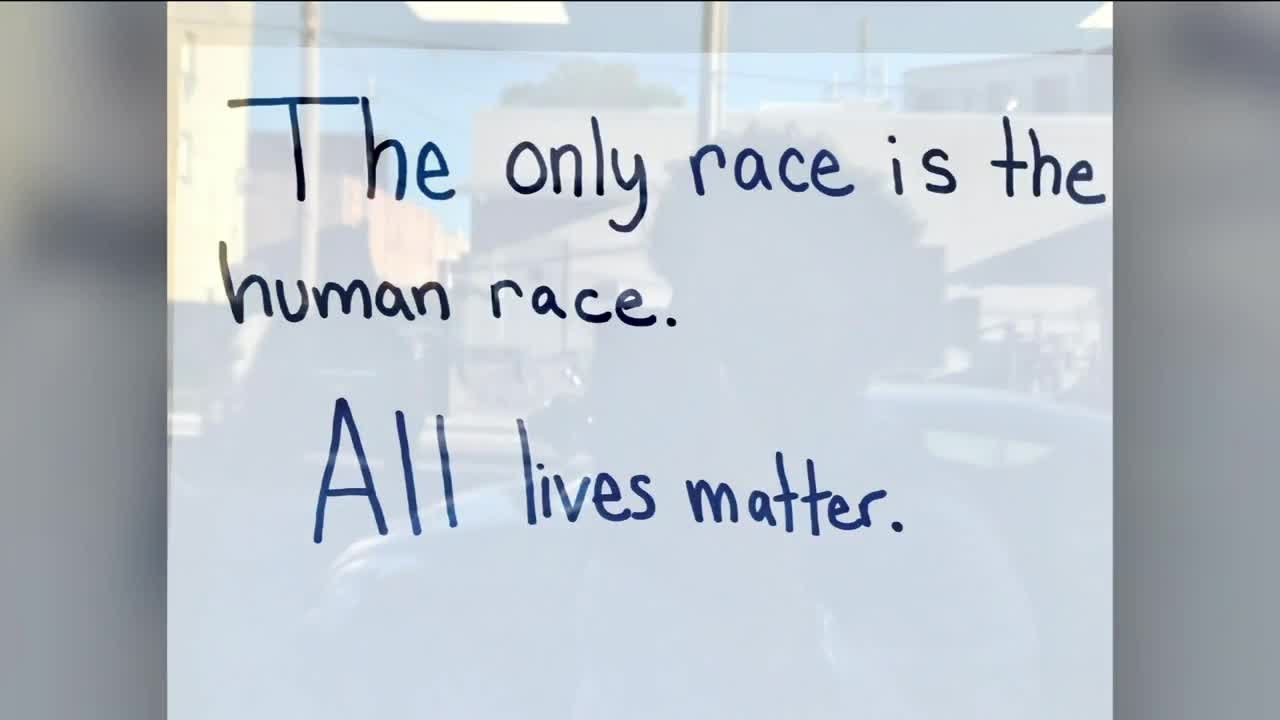 The only race is the
human race.
All lives matter.